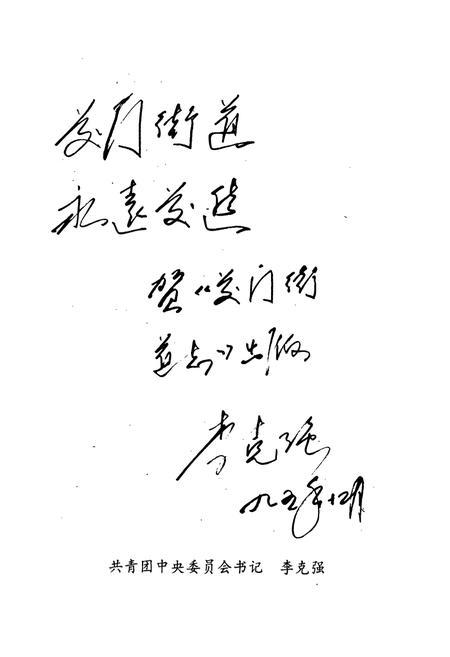 前门街道
永遠前進
贺《前门街
道志》出版
李克强
九五年十二月
共青团中央委员会书记 李克强